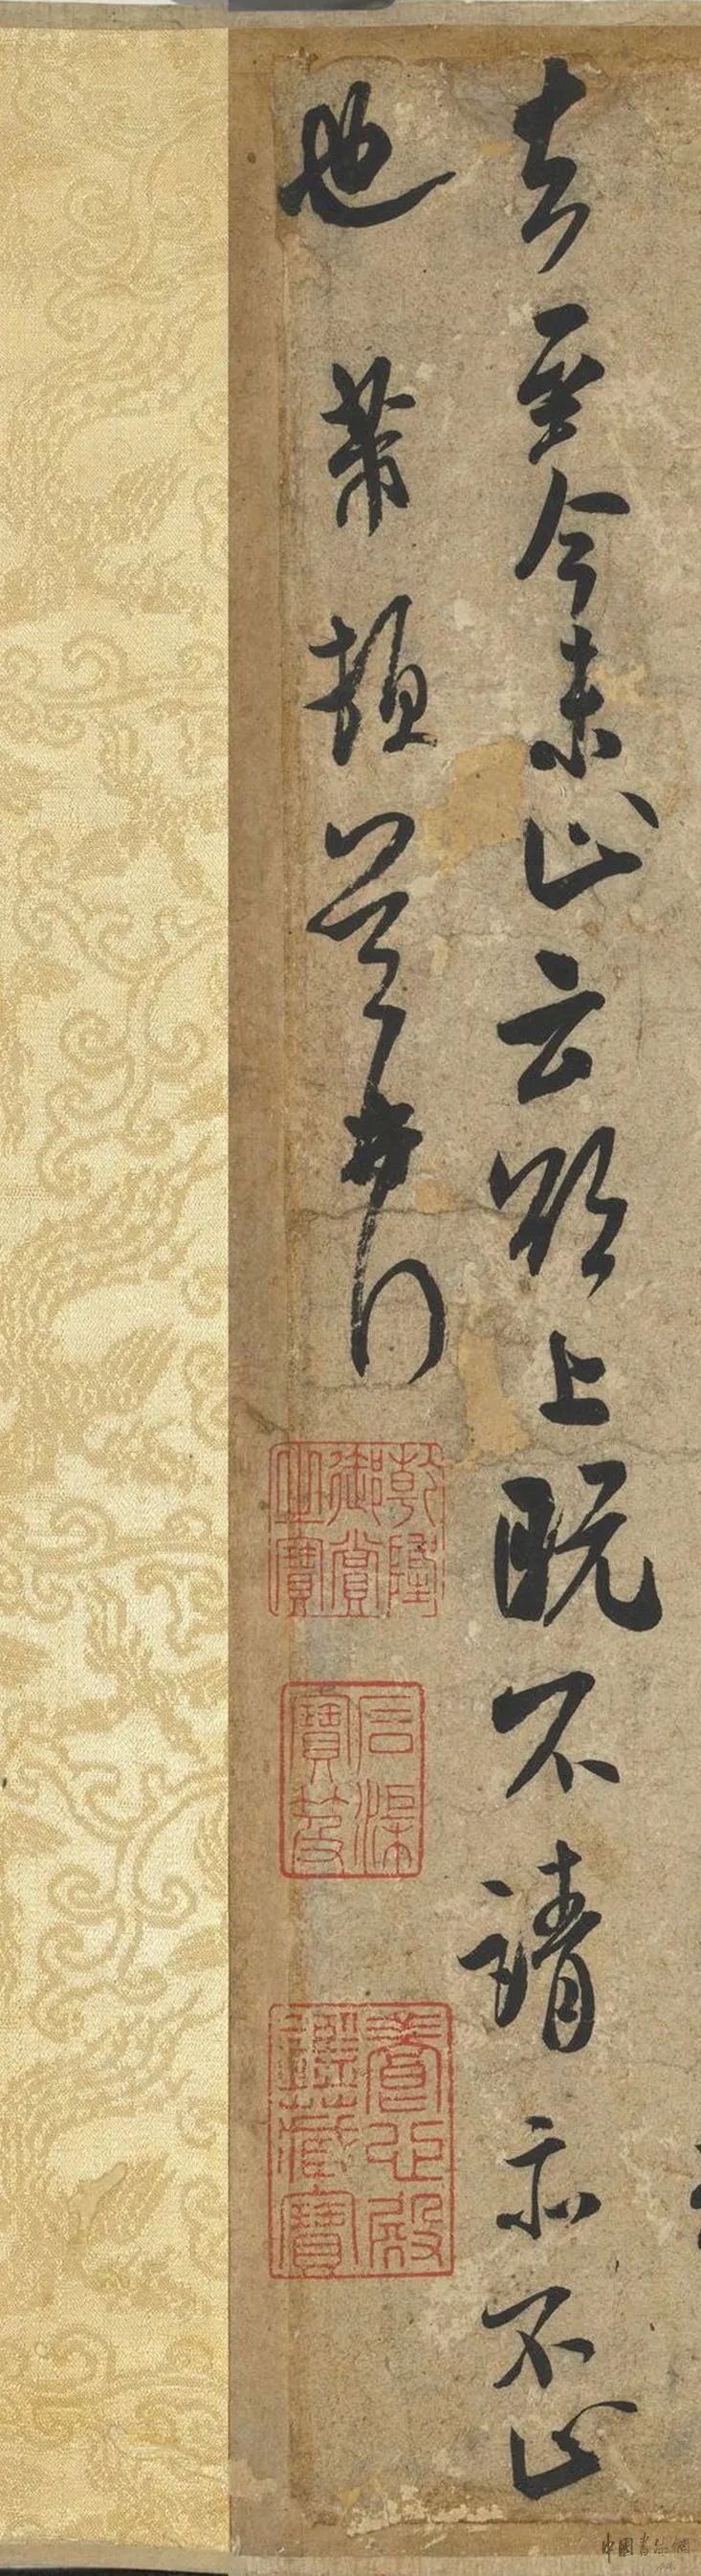 去至今未止云欲上既不請亦不止
也 芾頓首再拜
乾隆御賞之寶
石渠寶笈
養心殿鑑藏寶
中國書法網